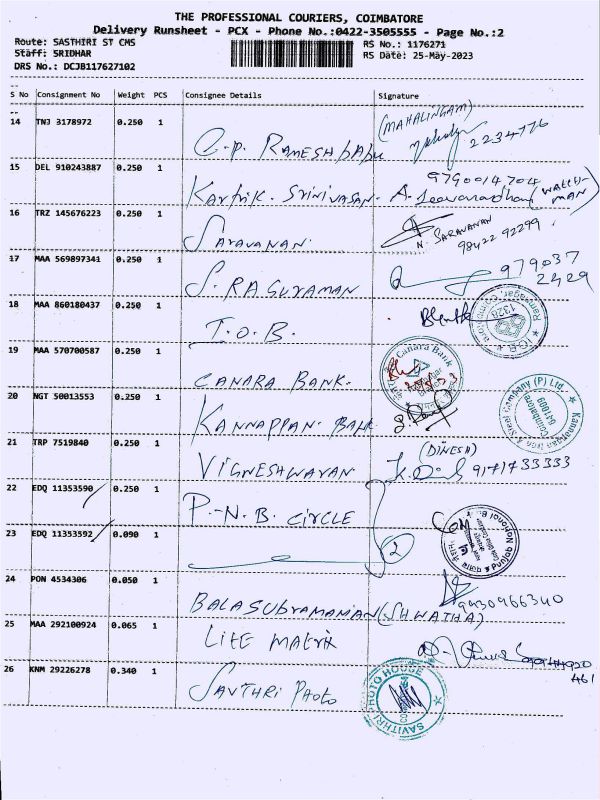 THE PROFESSIONAL COURIERS, COIMBATORE
Delivery Runsheet - PCX - Phone No.:0422-3505555 - Page No.:2
Route: SASTHIRI ST CMS RS No.: 1176271
Staff: SRIDHAR RS Date: 25-May-2023
DRS No.: DCJB117627102
S No Consignment No Weight PCS Consignee Details Signature
14 TNJ 3178972 0.250 1 (MAHALINGAM)
C.P. RAMESH babu 2234776
15 DEL 910243887 0.250 1 9790014704
Karthik. Srinivasan. (WATCH-MAN)
16 TRZ 145676223 0.250 1
Saravanan. N. SARAVANAN 98422 92299.
17 MAA 569897341 0.250 1 979037
S. RASURAMAN 2429
18 MAA 860180437 0.250 1
I.O.B. I.O.B 1328 Ramnagar, Coimbatore
19 MAA 570700587 0.250 1 Canara Bank
CANARA BANK.
20 NGT 50013553 0.250 1 Kannappan Iron & Steel Company (P) Ltd. Coimbatore 641009
KANNAPPAN.
21 TRP 7519840 0.250 1 (DINESH)
VIGNESHWARAN 9171733333
22 EDQ 11353590 0.250 1
P.N.B. CIRCLE
23 EDQ 11353592 0.090 1 2 Punjab National Bank
24 PON 4534306 0.050 1 9930966340
BALASUBRAMANIAN (SHWATHA)
25 MAA 292100924 0.065 1
LITE MATRIX 461
26 KNM 29226278 0.340 1
SAVTHRI PHOTO SAVITHRI PHOTO HOUSE